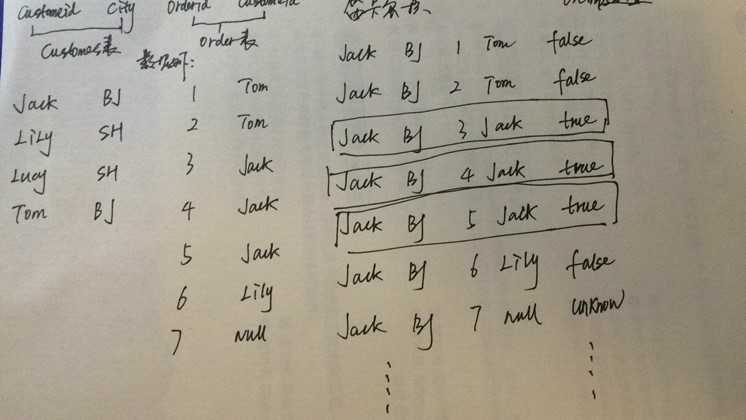 Customeid City Orderid Customeid 笛卡尔积、
Customes表 Order表
数据如下:
Jack BJ
LiLy SH
Lucy SH
Tom BJ
1 Tom
2 Tom
3 Jack
4 Jack
5 Jack
6 Lily
7 Null
Jack BJ 1 Tom false
Jack BJ 2 Tom false
Jack BJ 3 Jack true
Jack BJ 4 Jack true
Jack BJ 5 Jack true
Jack BJ 6 Lily false
Jack BJ 7 null unknow